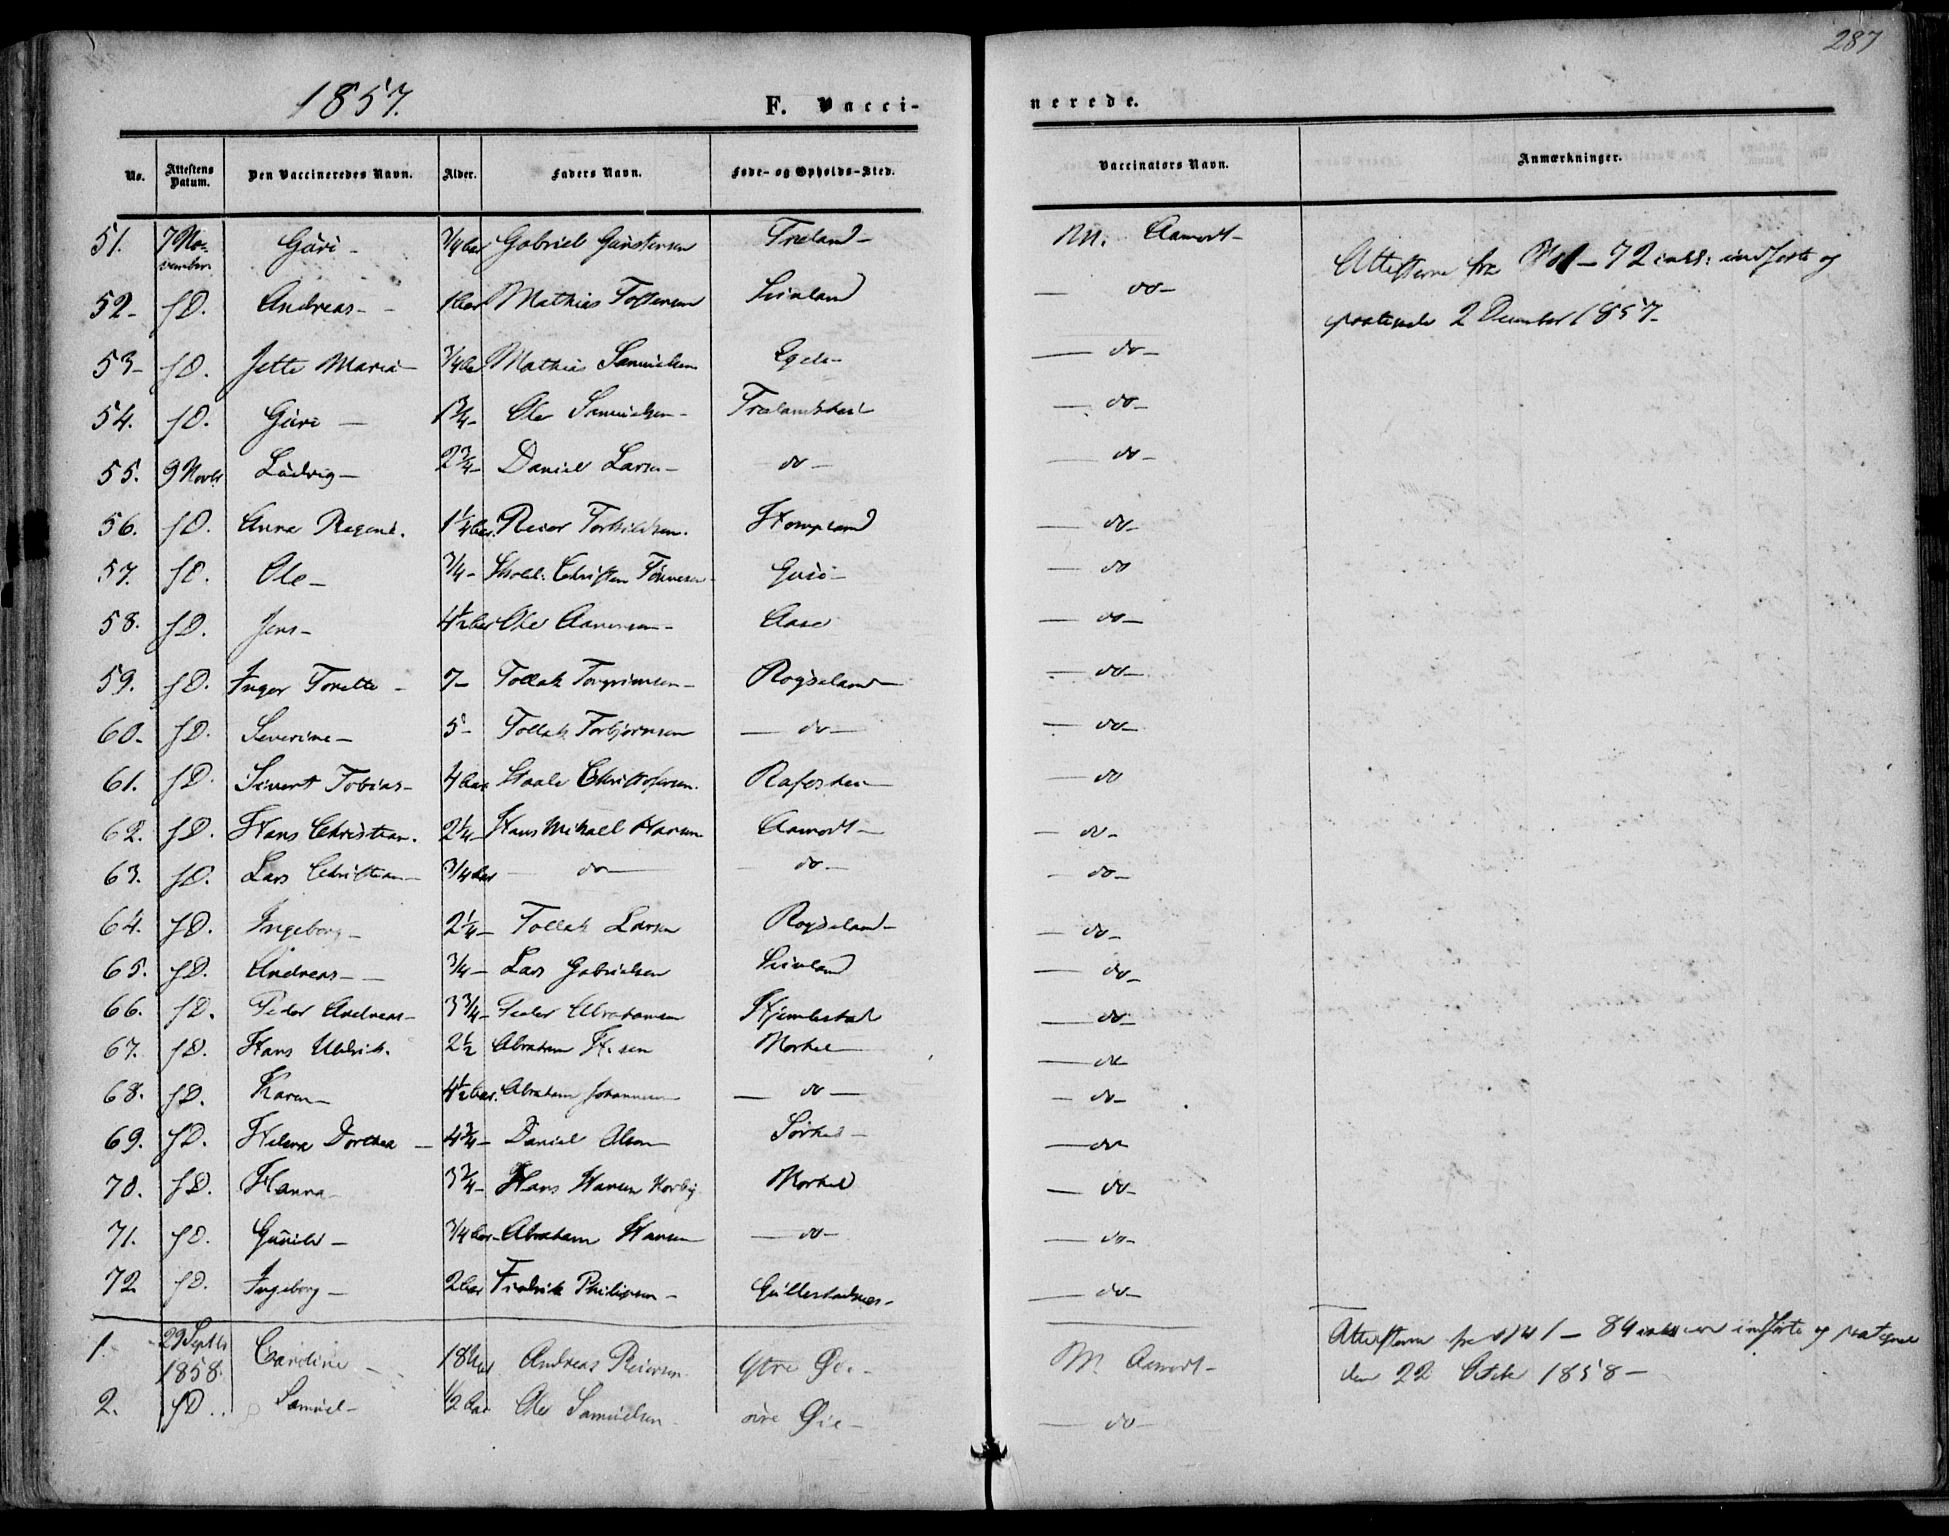 287
1857.
F. Vacci-
nerede.
No. Attestens Datum. Den Vaccineredes Navn. Alder. Faders Navn. Føde- og Opholds-Sted. Vaccinators Navn. Anmærkninger.
51. 7 November Guri - 3/4 Aar Gabriel Gunstensen Træland - M. Aamodt -
Attesterne fra No 1 - 72 inkl: indførte og
paategnede 2 December 1857 -
52 - s.D. Andreas - 1 Aar Mathias - do -
53 - s.D. Jette Maria - 3/4 Aar Mathias Samuelsen Egele - - do -
54. s.D. Guri - 1 3/4 - Ole Samuelsen - - do -
55. 9 Novbr Ludvig - 2 3/4 - Daniel Larsen - do - - do -
56. s.D. Anna Regine. 1 1/4 Aar. Reier Torkildsen. - do -
57. s.D. Ole - 3/4 - Christen Tønnesen - - do
58. s.D. Jens - 4 1/2 Aar Ole Aanensen - Aase - do -
59. s.D. Inger Tonette - 7 - Tollak Torgrimsen - Røyseland - - do -
60 - s.D. Severine - 5 - Tollak Torbjørnsen - do - - do -
61. s.D. Sivert Tobias - 4 Aar Staale Christophersen. - do
62. s.D. Hans Christian. 2 1/4 - Hans Mikall Hansen Aamodt - - do -
63. s.D. Lars Christian - 3/4 Aar - do - - do - - do -
64. s.D. Ingeborg - 2 1/4 - Tollak Larsen Røyseland - - do -
65. s.D. Andreas - 3/4 - Lars Gabrielsen - do -
66. s.D. Peder Andreas - 3 3/4 - Peder Abrahamsen - do -
67. s.D. Hans Uldrik. 2 1/2 Abraham - do -
68. s.D. Karen - 4 1/2 Aar. Abraham Johannesen - do - - do -
69. s.D. Helene Dorthea - 4 3/4 - Daniel Olsen - do -
70. s.D. Hanna - 3 3/4 - Hans Hansen - do -
71. s.D. Gunild - 3/4 Aar - Abraham Hansen - do - - do -
72 s.D. Ingeborg - 2 Aar Fredrik Philipsen - Gullestadnes - - do -
1. 29 Septbr 1858. Caroline - Andreas Reiersen Ytre Øie - M Aamodt -
Attesterne fra No 1 - 84 indførte og paategnede
den 22 Octbr 1858 -
2. s.D. Samuel - 1/2 Aar Ole Samuelsen Øie - - do -